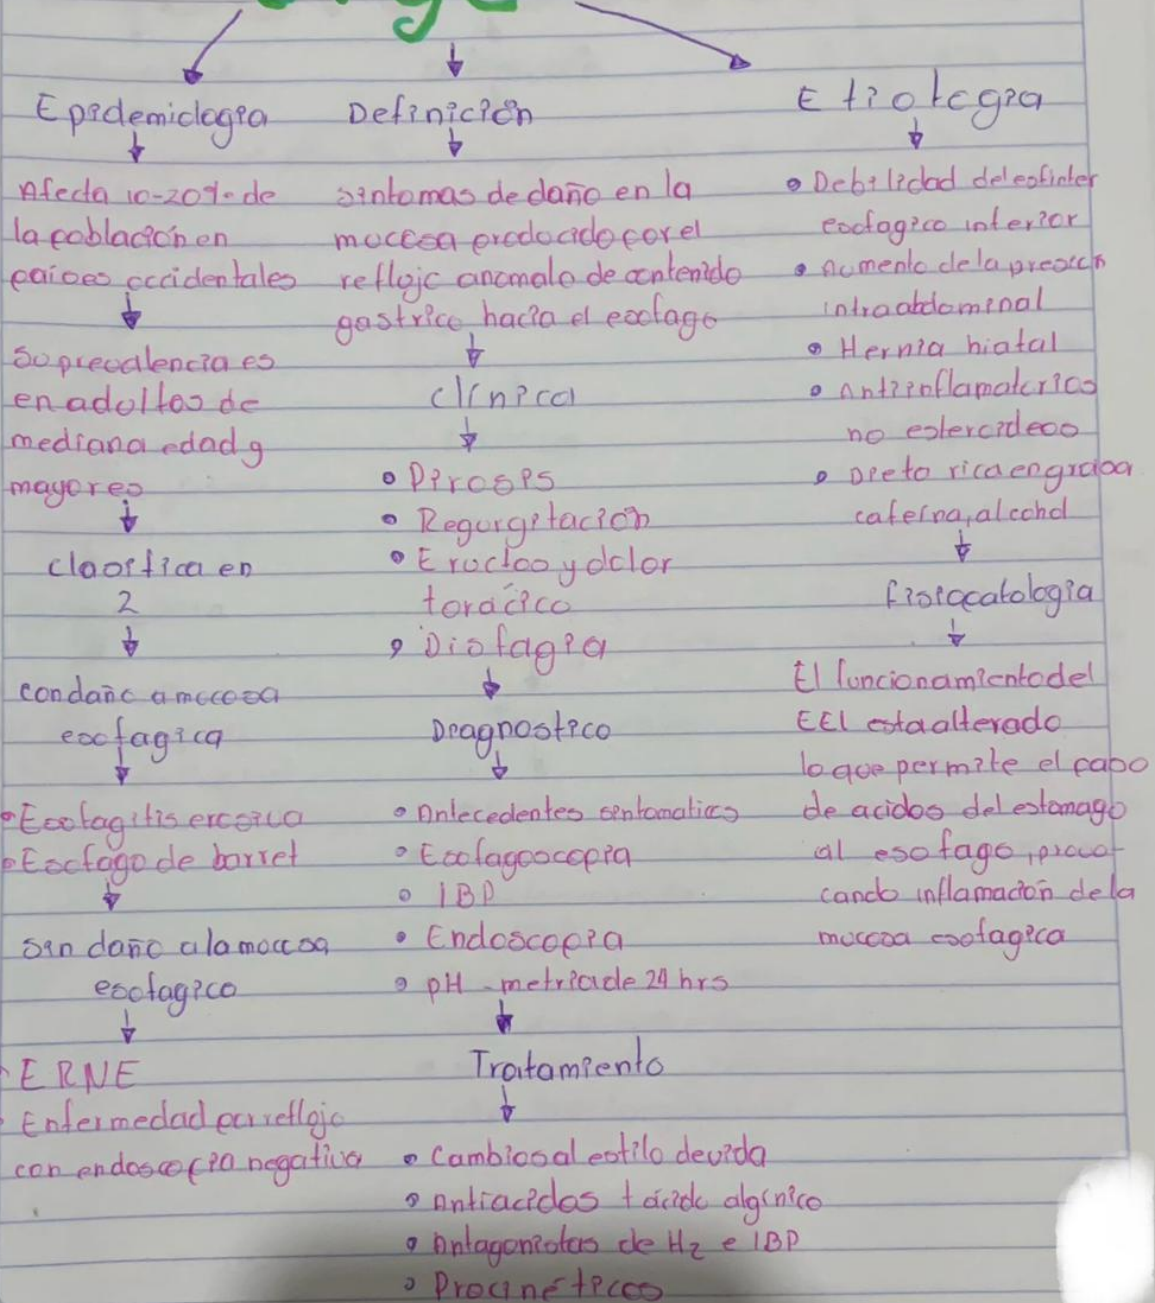 Epidemiologia
Afecta 10-20% de
la poblacion en
paises occidentales
Su prevalencia es
en adultos de
mediana edad y
mayores
clasifica en
2
con daño a mucosa
esofagica
• Esofagitis erosiva
• Esofago de barret
sin daño a la mucosa
esofagico
ERNE
Enfermedad por reflojo
con endoscopia negativa
Definición
sintomas de daño en la
mucosa producido por el
reflojo anomalo de contenido
gastrico, hacia el esofago
clínica
• Pirosis
• Regurgitación
• Eructos y dolor
torácico
• Disfagia
Diagnostico
• Antecedentes sintomatics
• Esofagoscopia
• IBP
• Endoscopia
• pH-metria de 24 hrs
Tratamiento
• Cambios al estilo de vida
• Antiacidos + ácido algínico
• Antagonistas de H2 e IBP
• Procinéticos
Etiologia
• Debilidad del esfinter
esofagico inferior
• Aumento de la presion
intraabdominal
• Hernia hiatal
• Antiinflamatorios
no esteroideos
• Dieta rica en grasa
cafeína, alcohol
fisiopatologia
El funcionamiento del
EEI esta alterado
lo que permite el paso
de acidos del estomago
al esofago, provo-
cando inflamación de la
mucosa esofagica